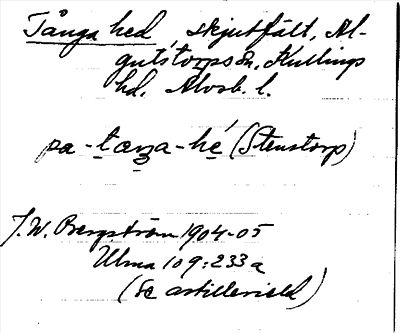 Tånga hed, skjutfält, Al-
gutstorps sn, Kullings
hd, Älvsb. l.
pa - taŋa - hé (Stenstorp)
J. W. Bergström 1904-05
Ulma 109:233a
(se artillerield)